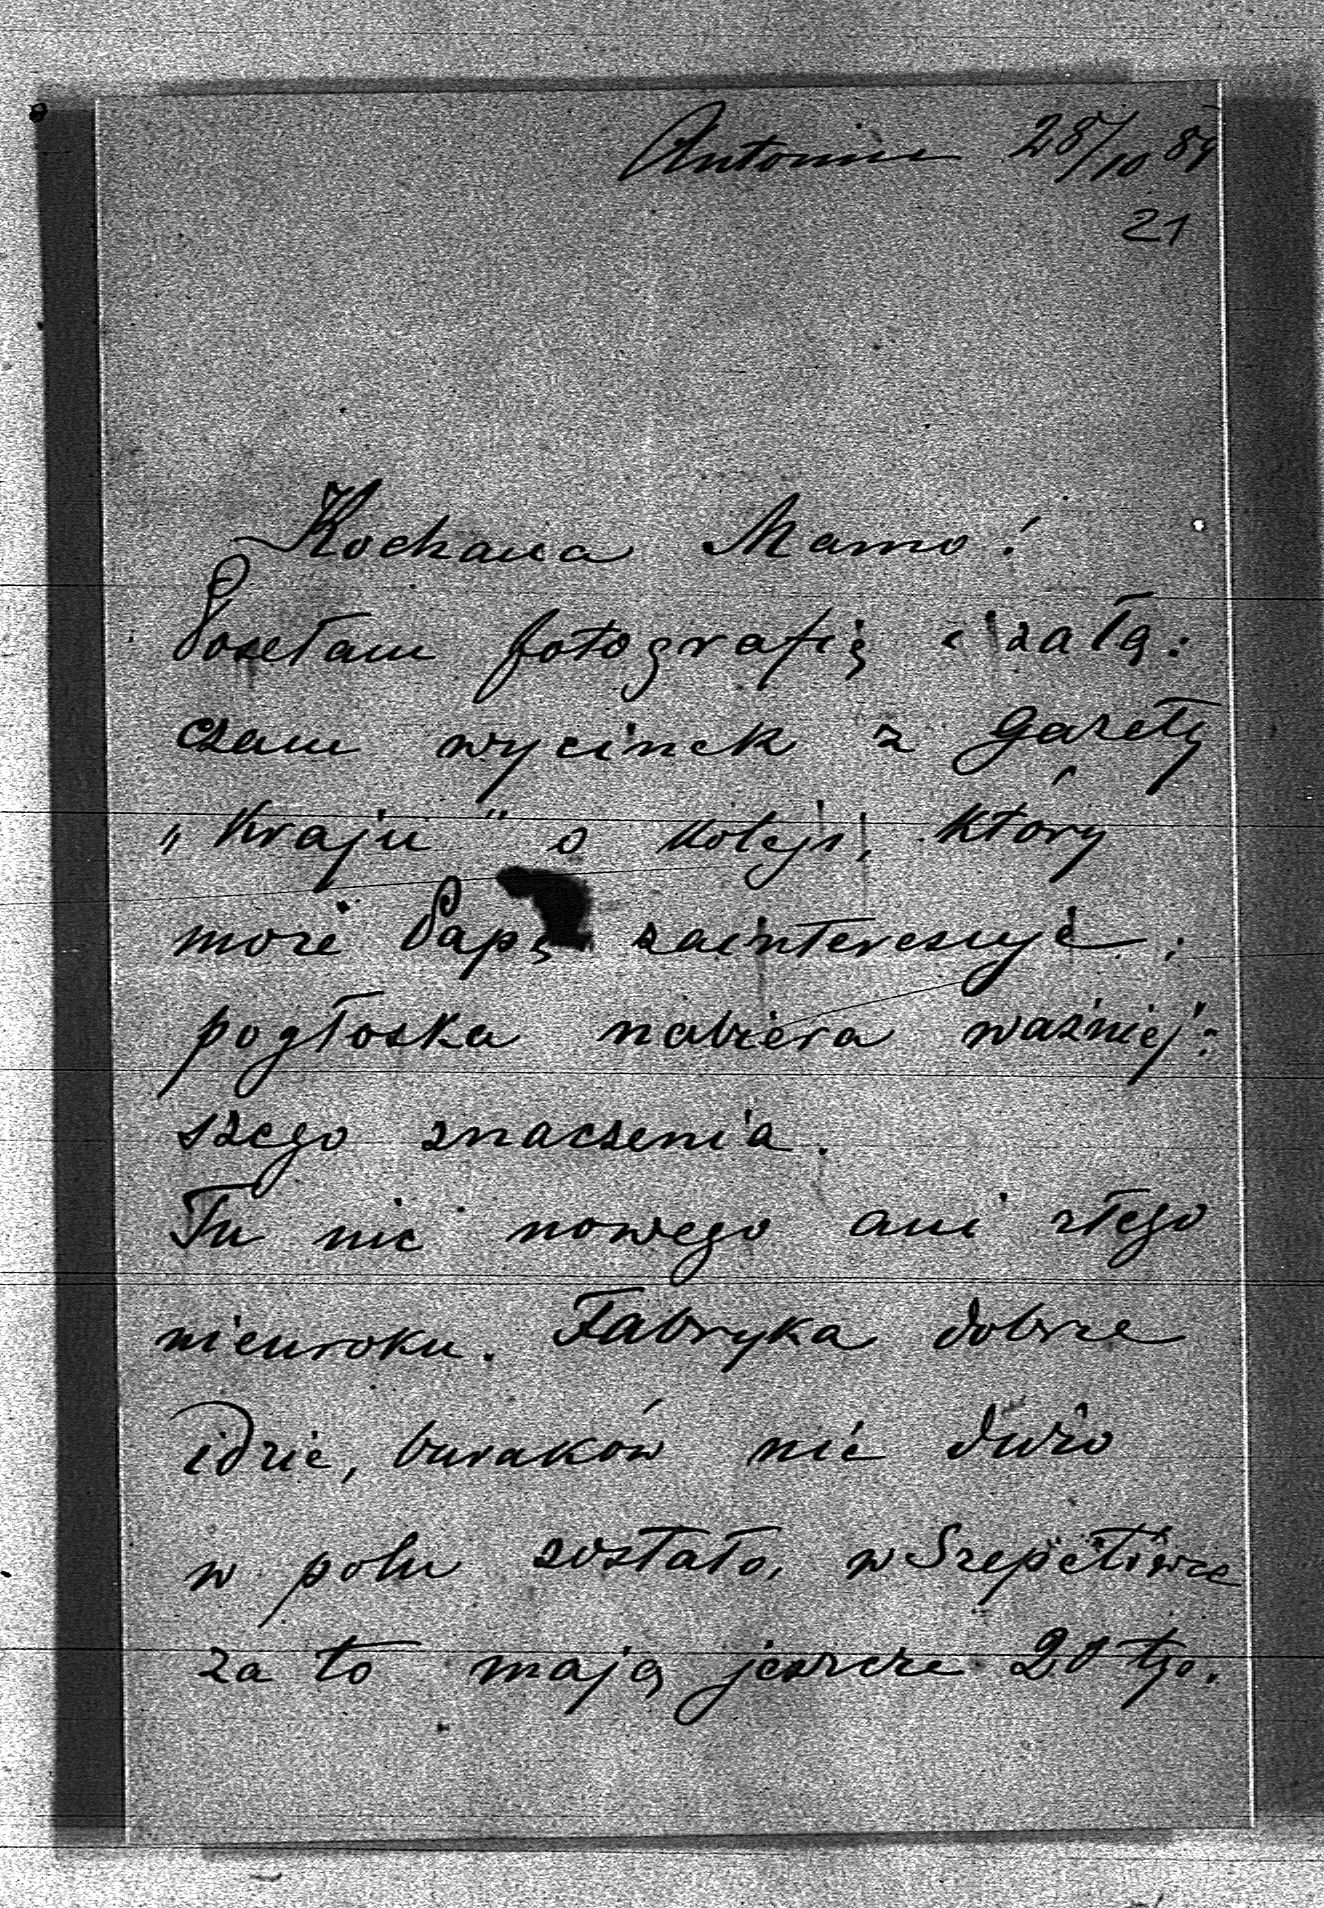 Antonin 28/10 89
21
Kochana Mamo!
Posełam fotografię i załą:
czam wycinek z Gazety
„Kraju" o kolei, który
może Papę zainteresuje.
pogłoska nabiera ważniej:
szego znaczenia.
Tu nic nowego ani złego
nieuroku. Fabryka dobrze
idzie, buraków nie dużo
w polu zostało, w Szepetówce
za to mają jeszcze 20 tys.